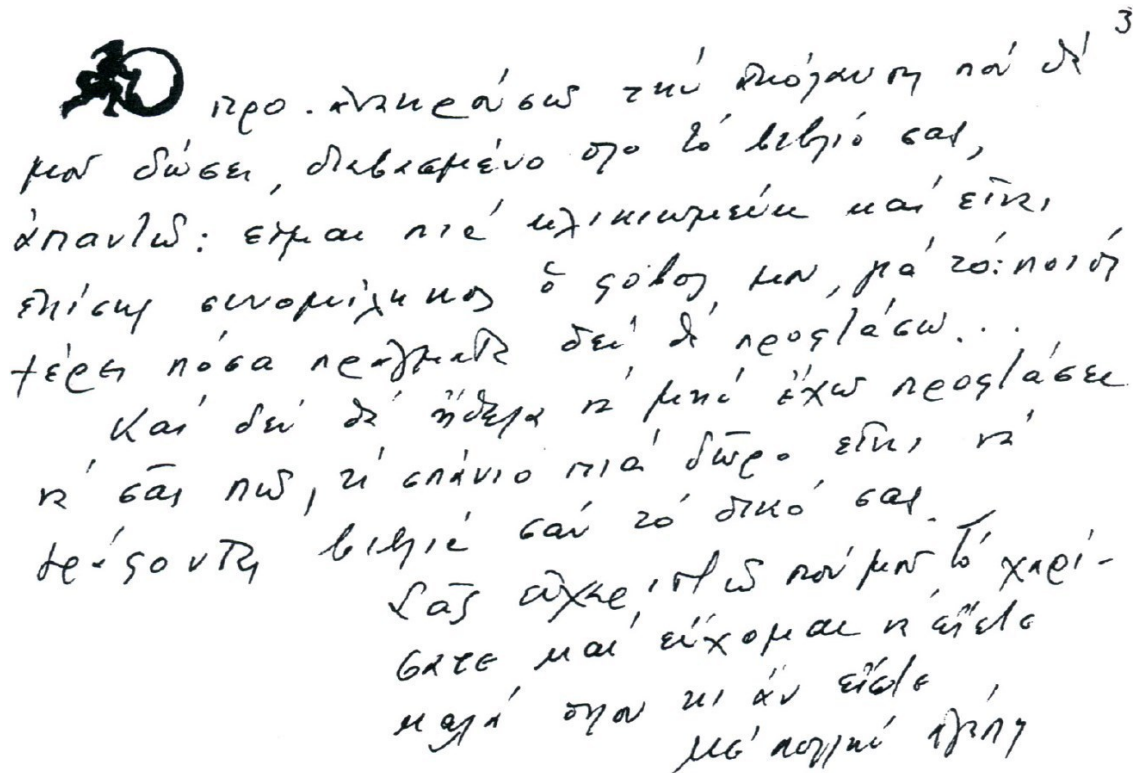 3
προ-ανακρούσω τήν ἀπόλαυση πού θά
μοῦ δώσει, διαβασμένο ὅλο τό βιβλίο σας,
ἀπαντῶ: εἶμαι πιά ἡλικιωμένη καί εἶναι
ἐπίσης συνομήλικος ὁ φόβος μου, γιά τό: ποιός
ξέρει πόσα πράγματα δέν θά προφτάσω...
Καί δέν θά ἤθελα νά μήν ἔχω προφτάσει
νά σᾶς πῶ, τί σπάνιο πιά δῶρο εἶναι νά
γράφονται βιβλία σάν τό δικό σας.
Σᾶς εὐχαριστῶ πού μοῦ τό χαρί-
σατε καί εὔχομαι νά εἶστε
καλά ὅπου κι ἄν εἶστε
Μέ πολλήν ἀγάπη